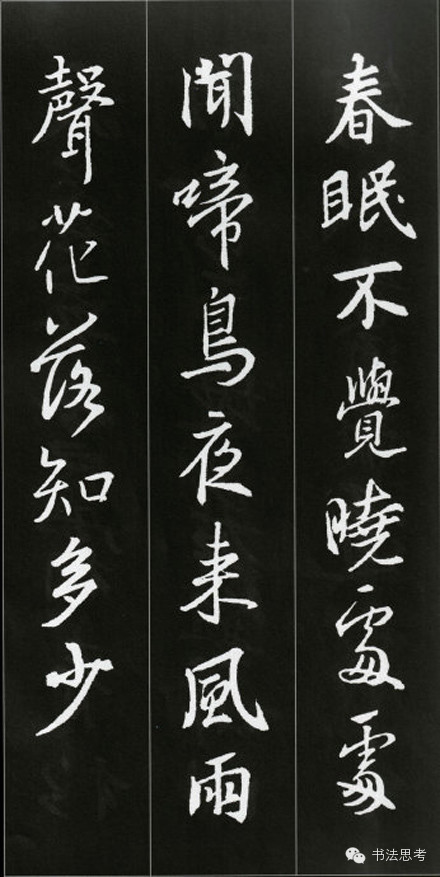 春眠不覺曉處處
聞啼鳥夜来風雨
聲花落知多少
书法思考